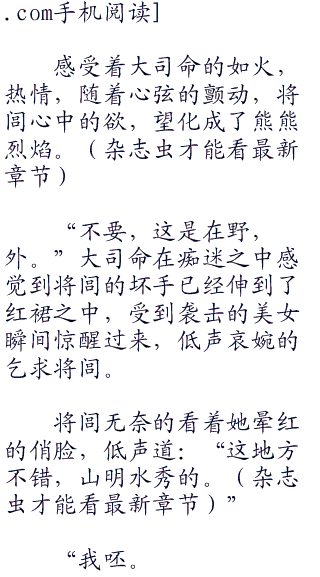 .com手机阅读]
感受着大司命的如火,
热情，随着心弦的颤动，将
闾心中的欲，望化成了熊熊
烈焰。（杂志虫才能看最新
章节）
“不要，这是在野，
外。”大司命在痴迷之中感
觉到将闾的坏手已经伸到了
红裙之中，受到袭击的美女
瞬间惊醒过来，低声哀婉的
乞求将闾。
将闾无奈的看着她晕红
的俏脸，低声道：“这地方
不错，山明水秀的。（杂志
虫才能看最新章节）”
“我呸。